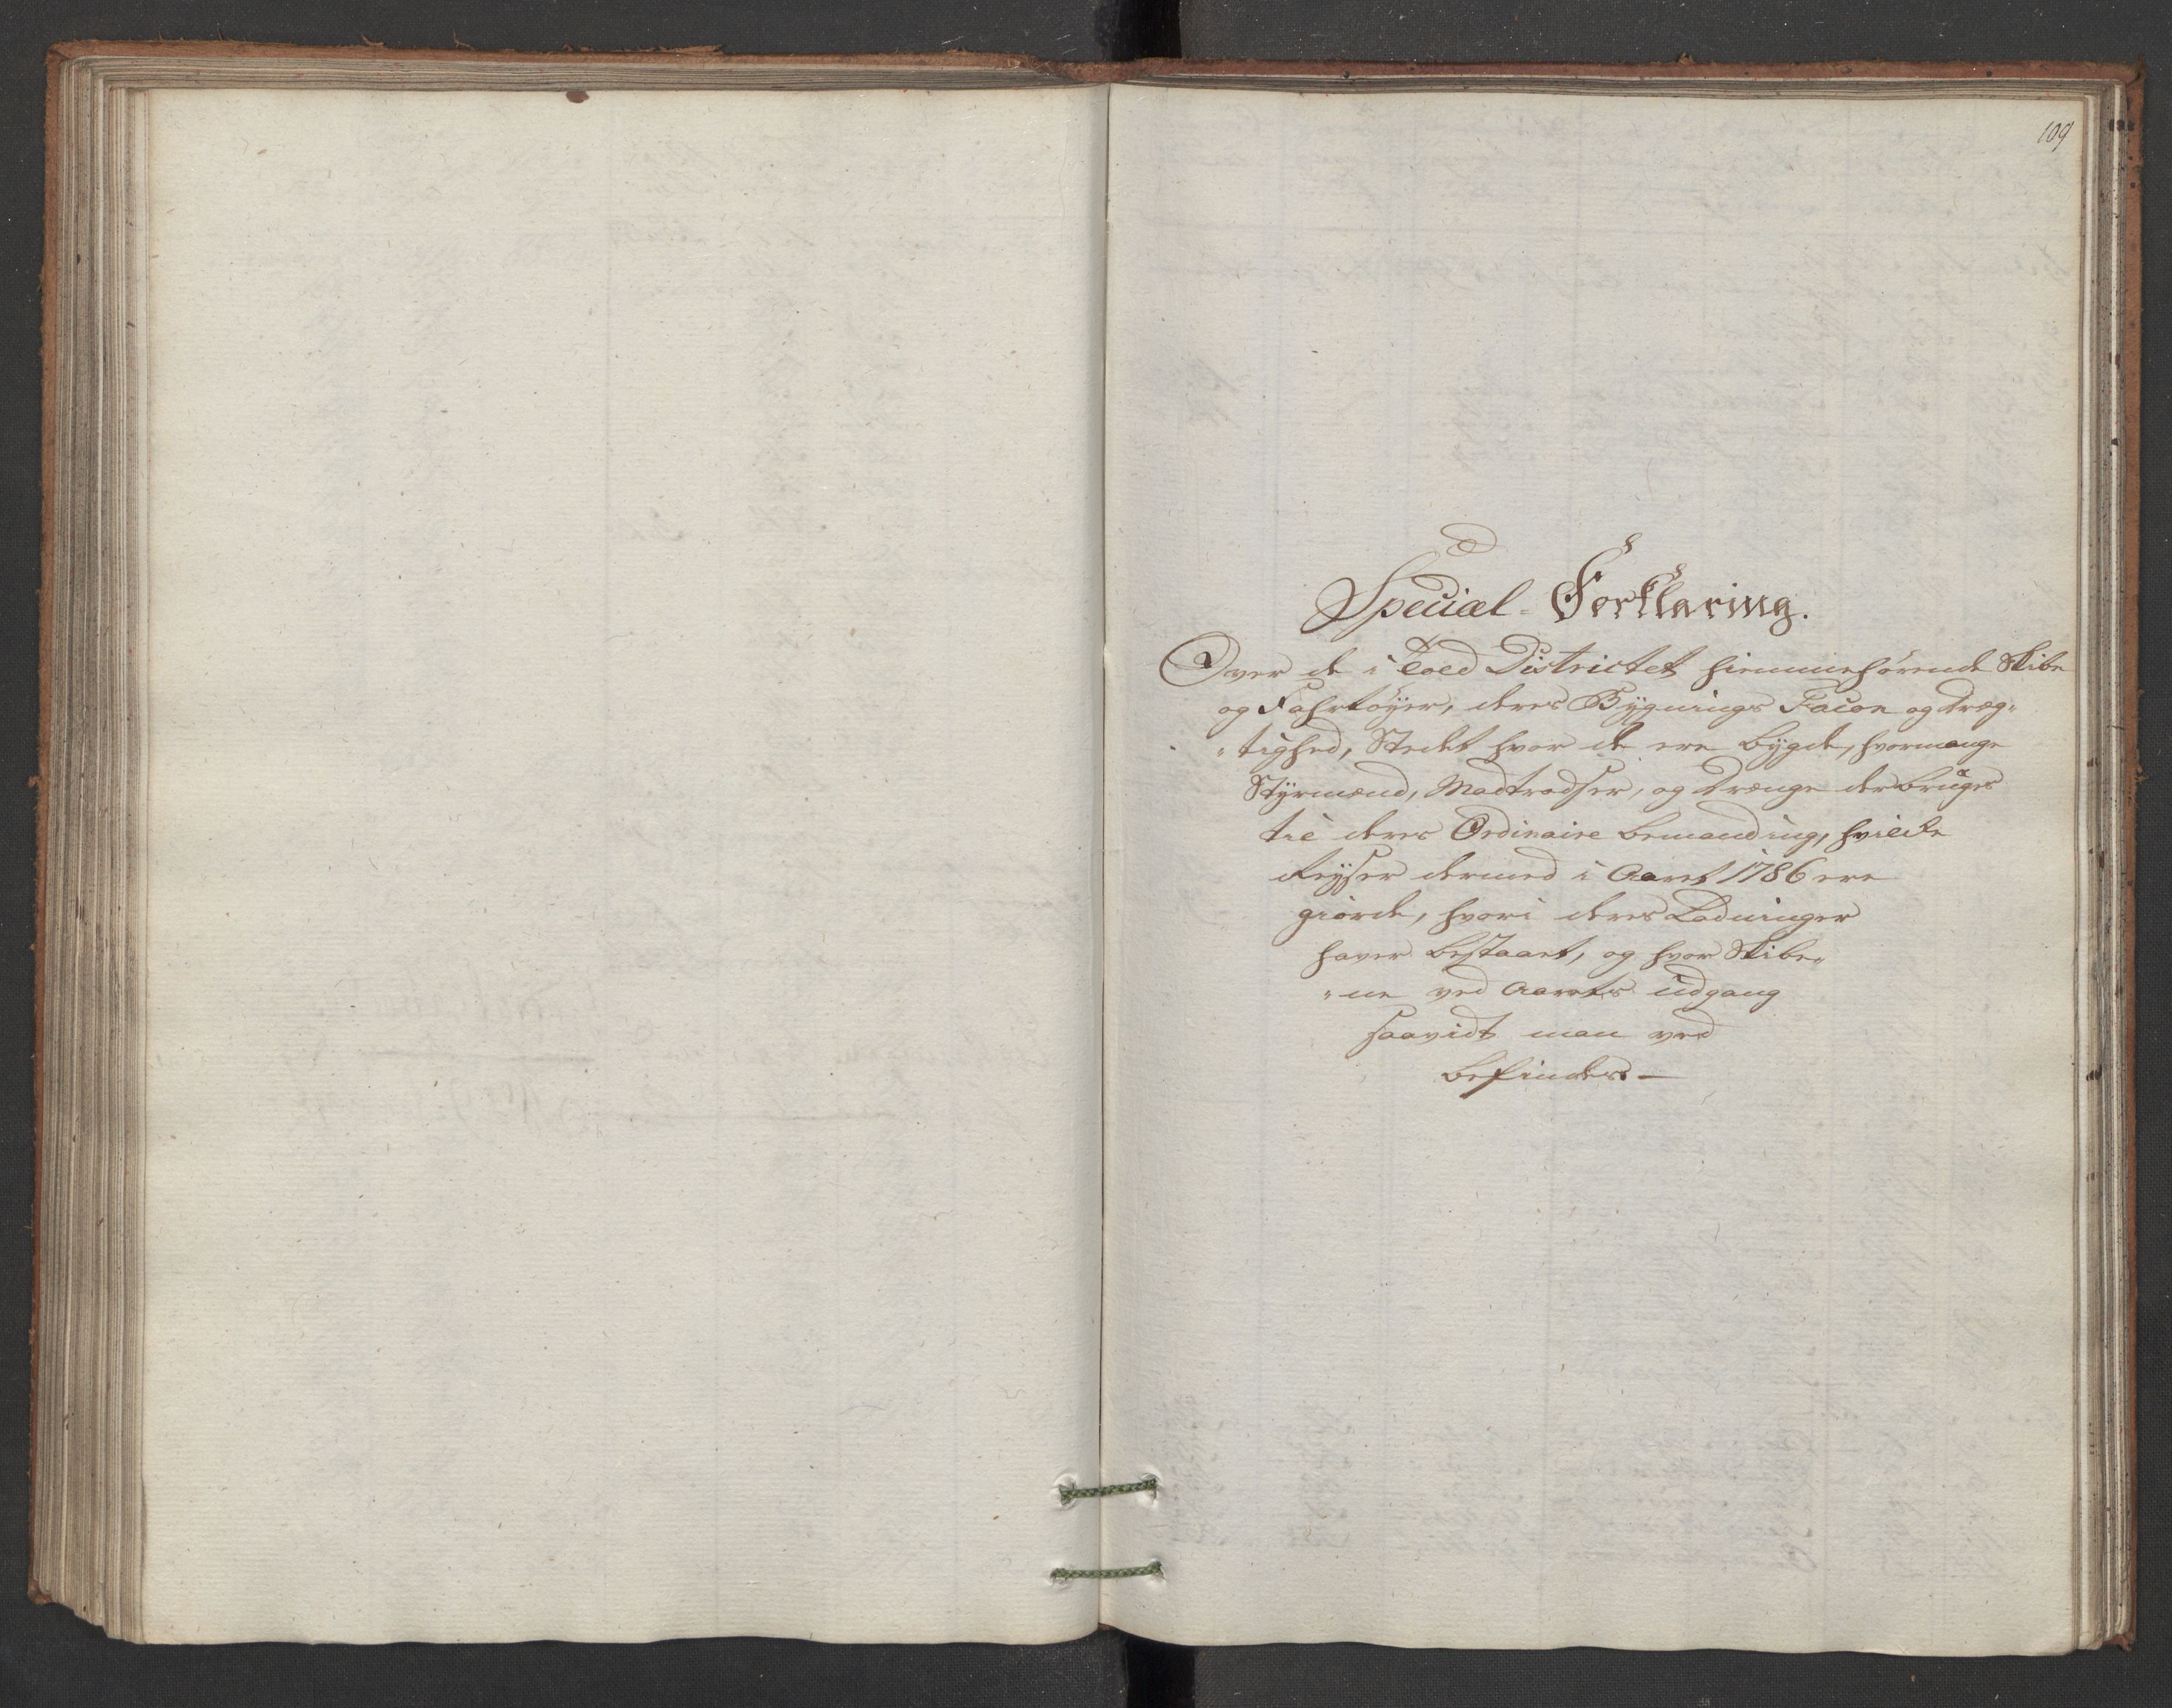 109
Special-Forklaring.
Over de i Told Districtet hiemmehørende Skibe
og Fahrtøyer, deres Bygnings Facon og Dræg„
„tighed, Stedet hvor de ere bygde, hvormange
Styrmænd, Madtrodser, og Drænge der bruges
til deres Ordinaire bemanding, hvilcke
Reyser dermed i Aaret 1786 ere
giørde, hvori deres Ladninger
haver bestaaet, og hvor Skibe„
„ne ved Aarets Udgang
saavidt man ved
befindes.—